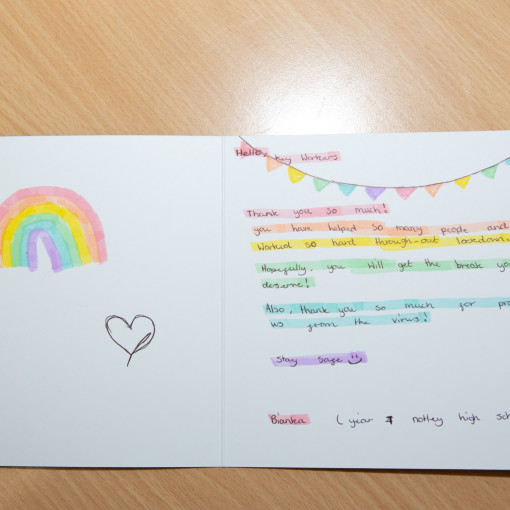 Hello, key Workers
Thank you so much!
you have helped so many people and
Worked so hard through-out lockdown.
Hopefully, you will get the break you
deserve!
Also, thank you so much for pro
us from the virus!
Stay safe
Bianka (year 7 notley high sch